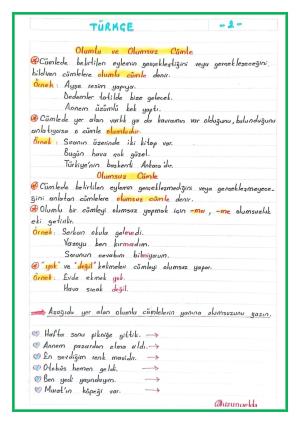 TÜRKÇE
- 2 -
Olumlu ve Olumsuz Cümle
Cümlede belirtilen eylemin gerçekleştiğini veya gerçekleşeceğini
bildiren cümlelere olumlu cümle denir.
Örnek : Ayşe resim yapıyor.
Dedemler tatilde bize gelecek.
Annem üzümlü kek yaptı.
Cümlede yer alan varlık ya da kavramın var olduğunu, bulunduğunu
anlatıyorsa o cümle olumludur.
Örnek : Sıranın üzerinde iki kitap var.
Bugün hava çok güzel.
Türkiye'nin başkenti Ankara'dır.
Olumsuz Cümle
Cümlede belirtilen eylemin gerçekleşmediğini veya gerçekleşmeyece-
ğini anlatan cümlelere olumsuz cümle denir.
Olumlu bir cümleyi olumsuz yapmak için -ma, -me olumsuzluk
eki getirilir.
Örnek : Serkan okula gelmedi.
Vazoyu ben kırmadım.
Sorunun cevabını bilmiyorum.
"yok" ve "değil" kelimeleri cümleyi olumsuz yapar.
Örnek : Evde ekmek yok.
Hava sıcak değil.
Aşağıda yer alan olumlu cümlelerin yanına olumsuzunu yazın.
Hafta sonu pikniğe gittik.
Annem pazardan elma aldı.
En sevdiğim renk mavidir.
Otobüs hemen geldi.
Ben yedi yaşındayım.
Murat'ın köpeği var.